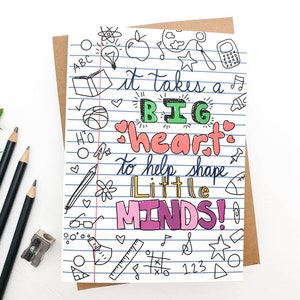 ABC
it takes a
BIG
heart
to help shape
Little
MINDS!
123